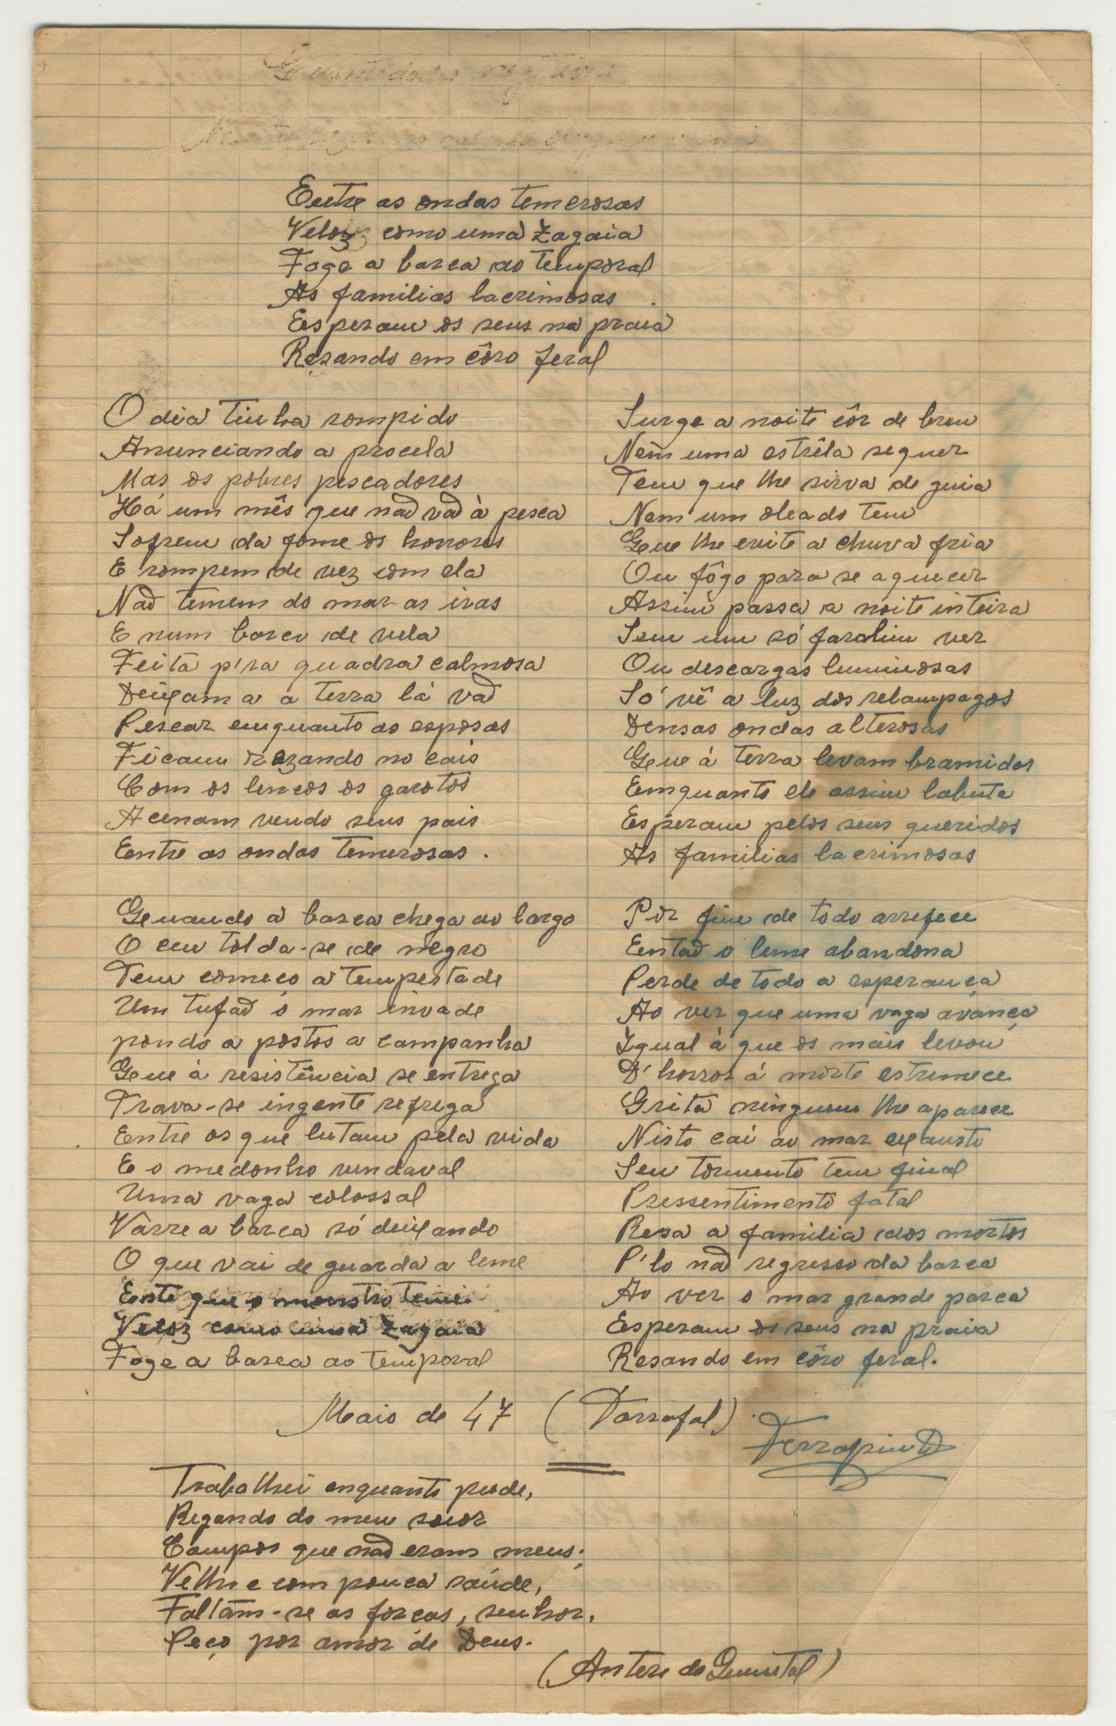 Entre as ondas temerosas
Veloz como uma zagaia
Foge a barca ao temporal
As familias lacrimosas
Esperam os seus na praia
Resando em côro feral
O dia tinha rompido
Anunciando a procela
Mas os pobres pescadores
Há um mês que não vão à pesca
Sofrem da fome os horrores
E rompem de vez com ela
Não temem do mar as iras
E num barco de vela
Feita p'ra quadra calmosa
Deixam a a terra lá vão
Pescar emquanto as esposas
Ficam rezando no cais
Com os lencos os garotos
Acenam vendo seus pais
Entre as ondas temerosas.
Quando a barca chega ao largo
O ceu tolda-se de negro
Tem comeco a tempestade
Um tufão o mar invade
pondo a postos a campanha
Que á resistência se entrega
Trava-se ingente refrega
Entre os que lutam pela vida
E o medonho vendaval
Uma vaga colossal
Varre a barca só deixando
O que vai de guarda a leme
Este que o monstro teme
Veloz como uma zagaia
Foge a barca ao temporal
Surge a noite côr de breu
Nem uma estrêla sequer
Tem que lhe sirva de guia
Nem um oleado tem
Que lhe evite a chuva fria
Ou fôgo para se aquecer
Assim passa a noite inteira
Sem um só farolim ver
Ou descargas luminosas
Só vê a luz dos relampagos
Densas ondas alterosas
Que á terra levam bramidos
Emquanto ele assim labuta
Esperam pelos seus queridos
As familias lacrimosas
Por fim de todo arrefece
Então o leme abandona
Perde de todo a esperança
Ao ver que uma vaga avança
Igual á que os mais levou
D'horror á morte estremece
Grita ninguem lhe aparece
Nisto cai ao mar exausto
Seu tormento tem final
Pressentimento fatal
Resa a familia dos mortos
P'lo não regresso da barca
Ao ver o mar grande parca
Esperam os seus na praia
Resando em côro feral.
Maio de 47 (Tarrafal)
Trabalhei enquanto pude,
Regando do meu suor
Campos que não eram meus;
Velho e com pouca saúde,
Faltam-se as forcas, senhor,
Peço por amor de Deus.
(Antero do Quental)